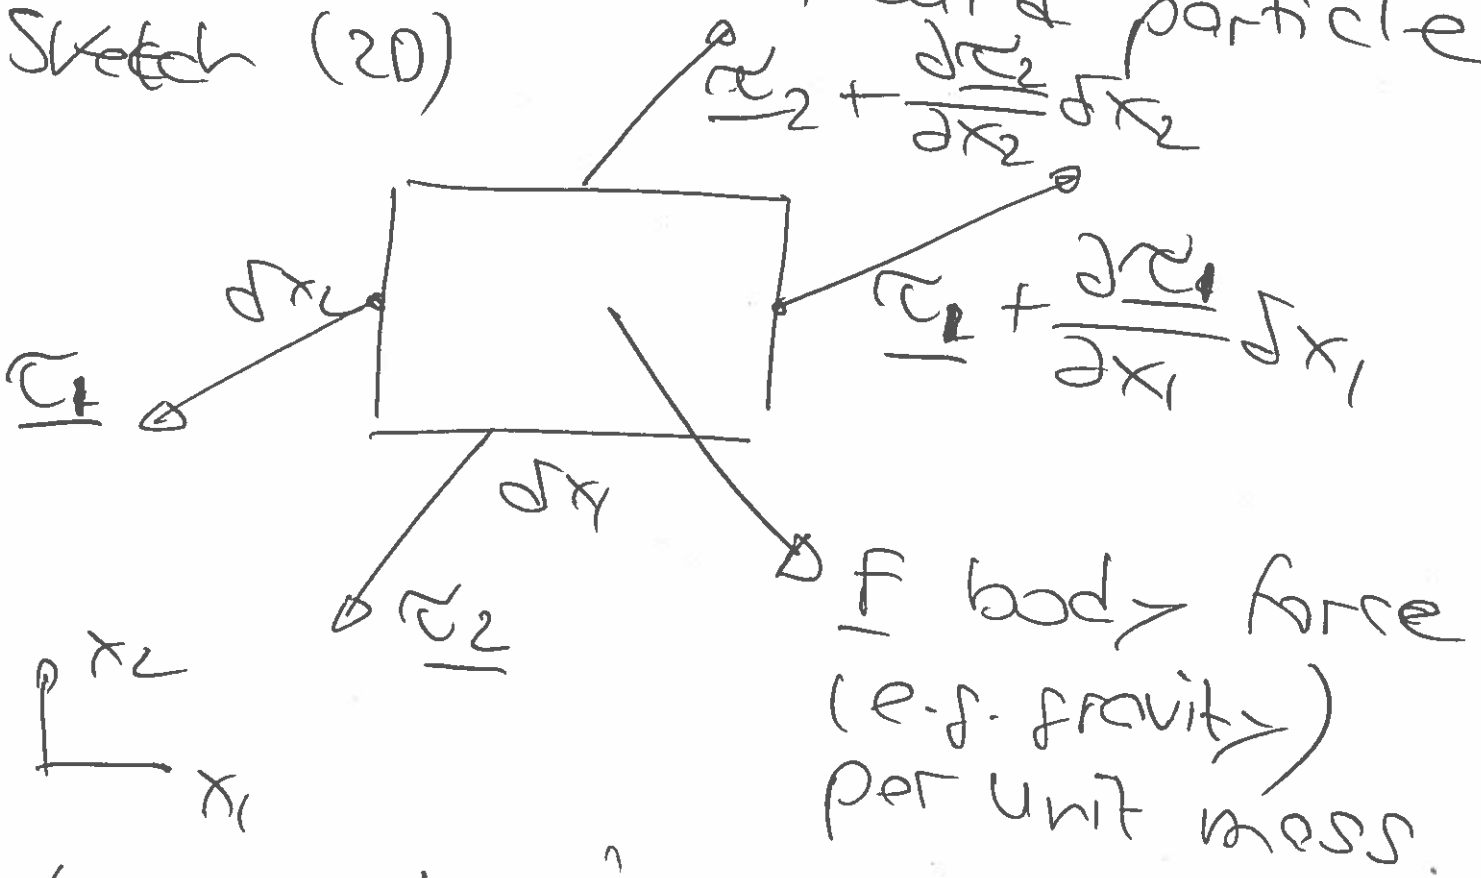 Sketch (2D)
particle
τ₂ + ∂τ₂/∂x₂ δx₂
δx₂
τ₁ + ∂τ₁/∂x₁ δx₁
τ₁
δx₁
τ₂
F body force
(e.g. gravity)
per unit mass.
x₂
x₁